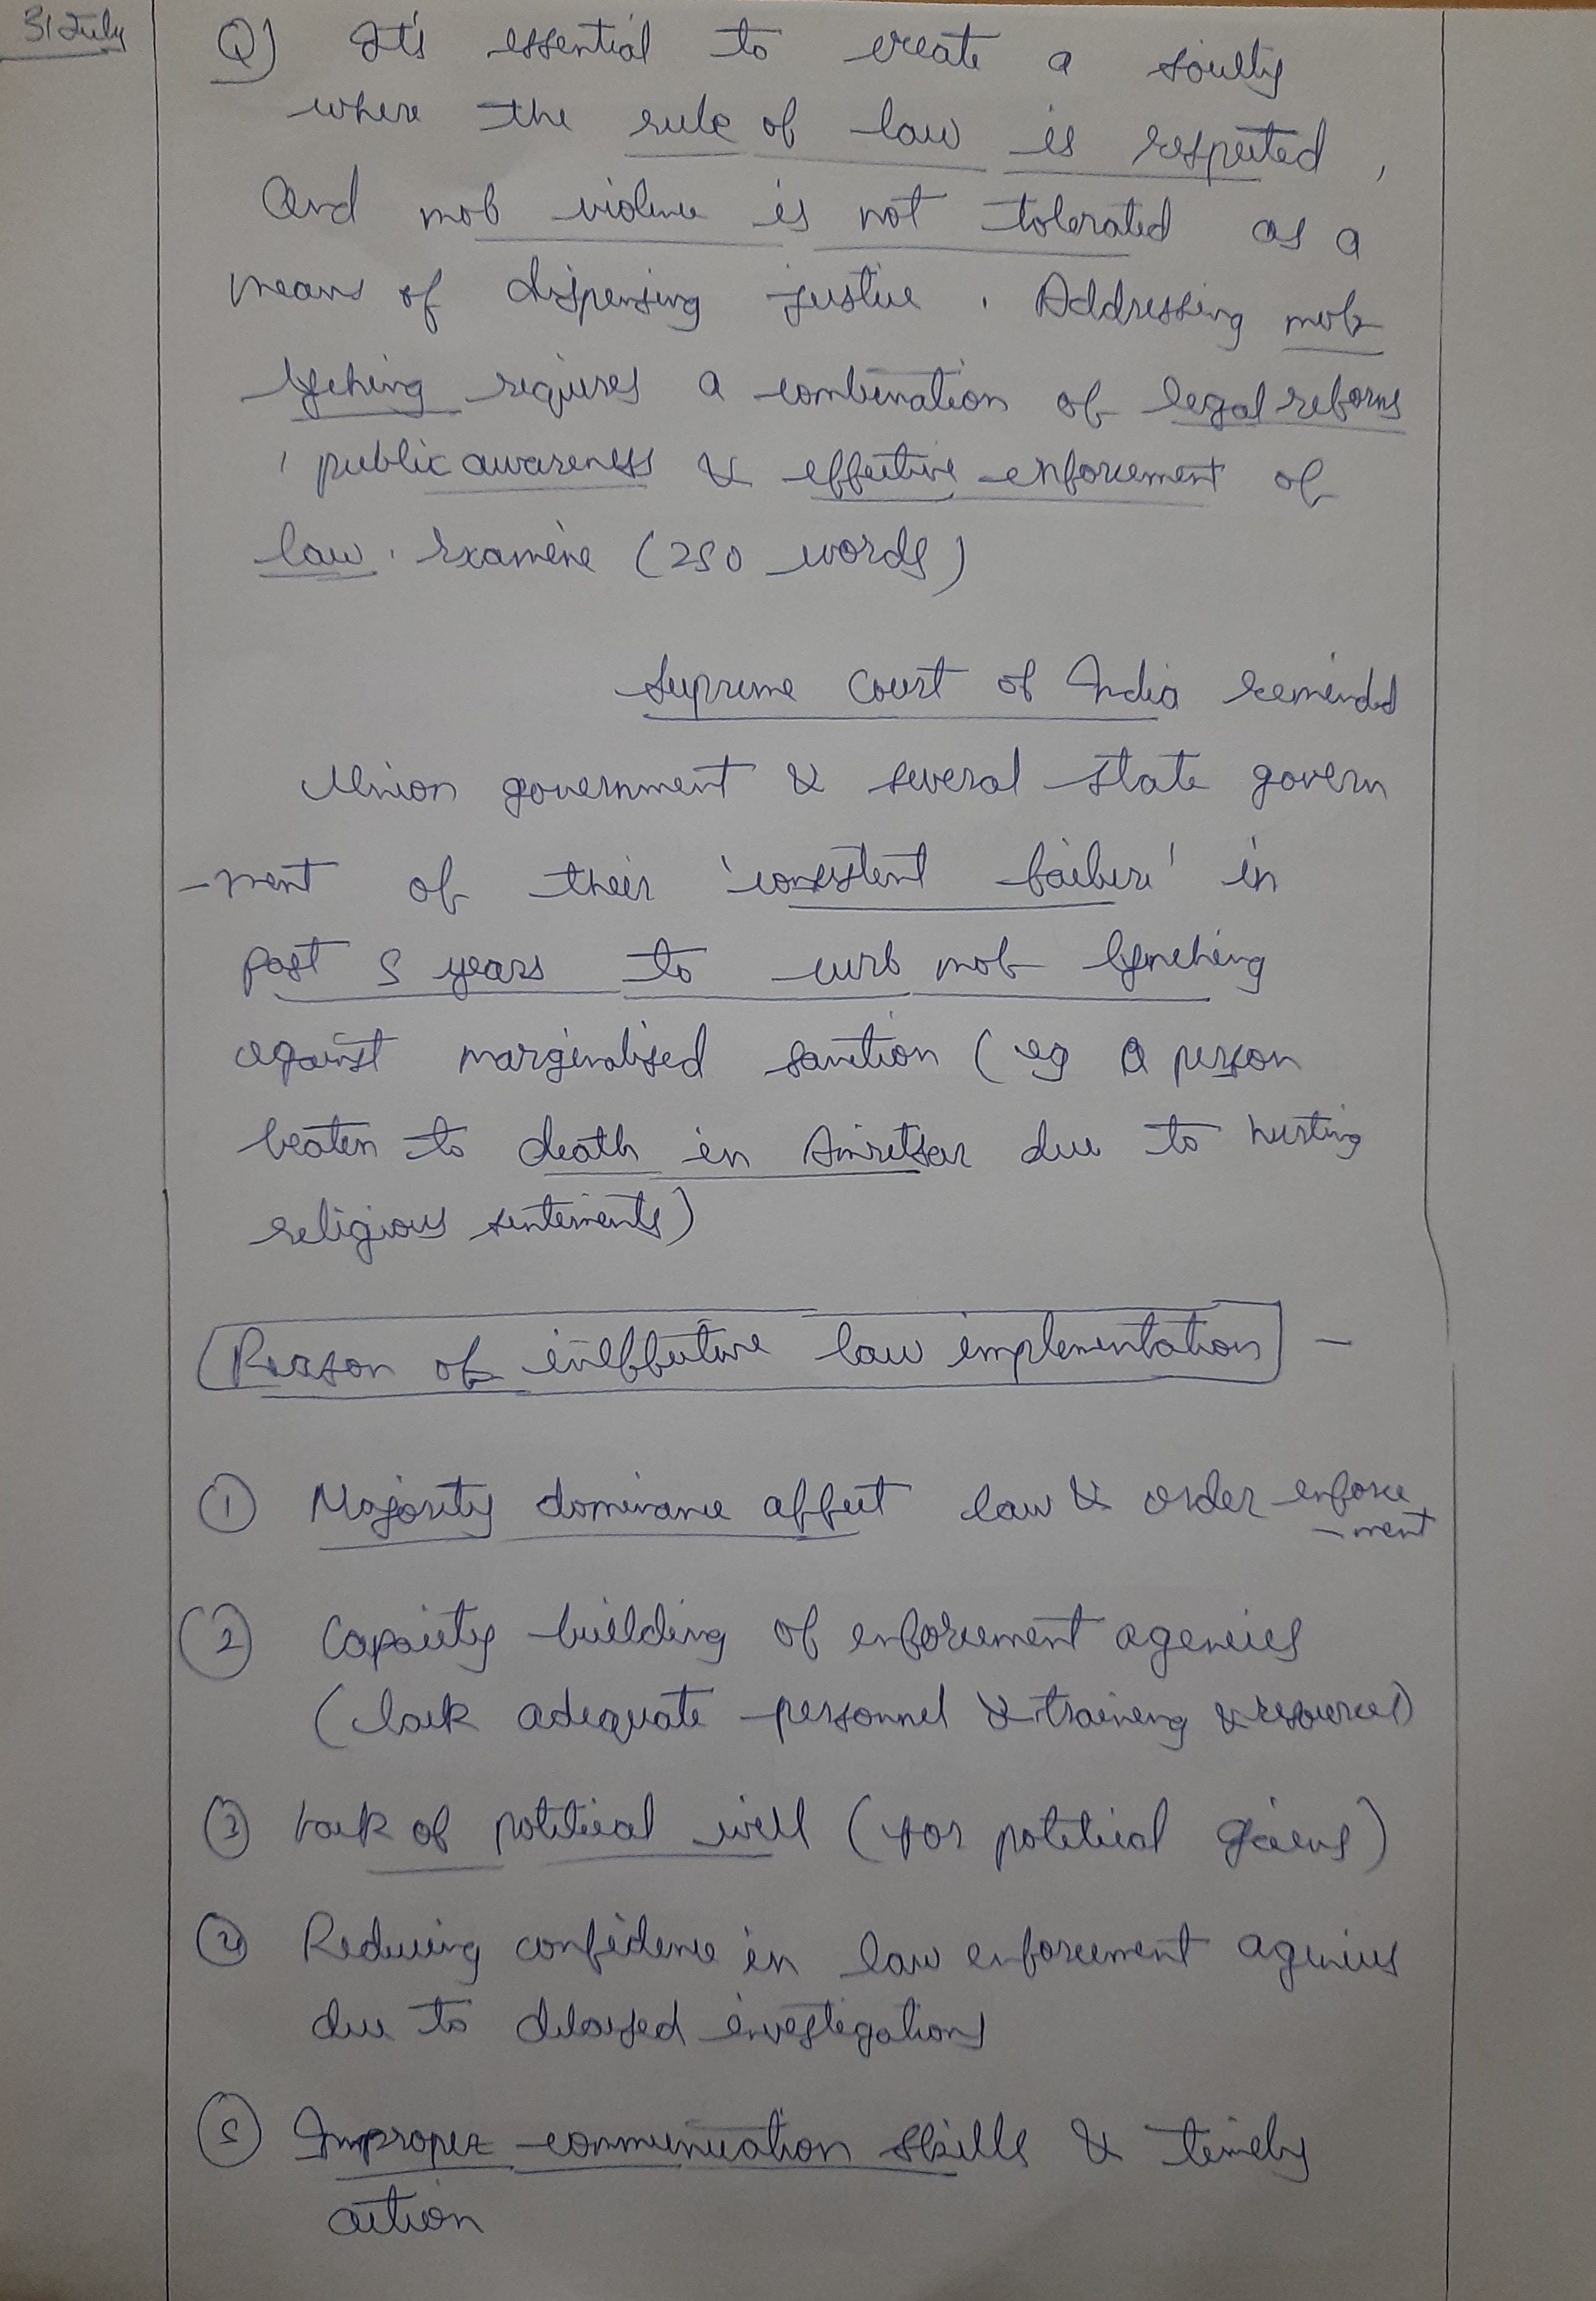 31 July
Q) It's essential to create a society
where the rule of law is respected,
and mob violence is not tolerated as a
means of dispensing justice. Addressing mob
lyching requires a combination of legal reforms
, public awareness & effective enforcement of
law. Examine (250 words)
Supreme Court of India reminded
Union government & several state govern
-ment of their 'consistent failure' in
past 5 years to curb mob lynching
against marginalised sanction (eg A person
beaten to death in Amritsar due to hurting
religious sentiments)
Reason of ineffective law implementation -
① Majority dominance affect law & order enforce
-ment
② Capacity building of enforcement agencies
(lack adequate personnel & training & resources)
③ Lack of political will (for political gains)
④ Reducing confidence in law enforcement agencies
due to delayed investigations
⑤ Improper communication skills & timely
action